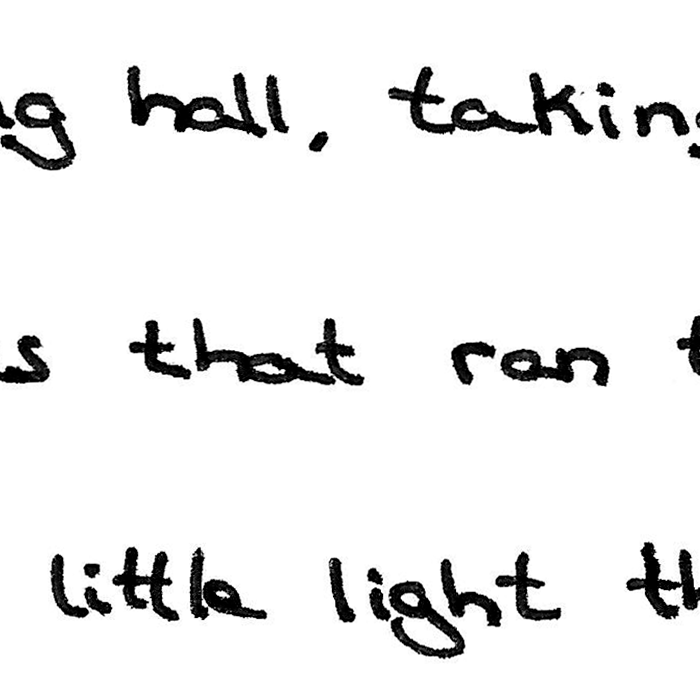 hall, taking
that ran
little light